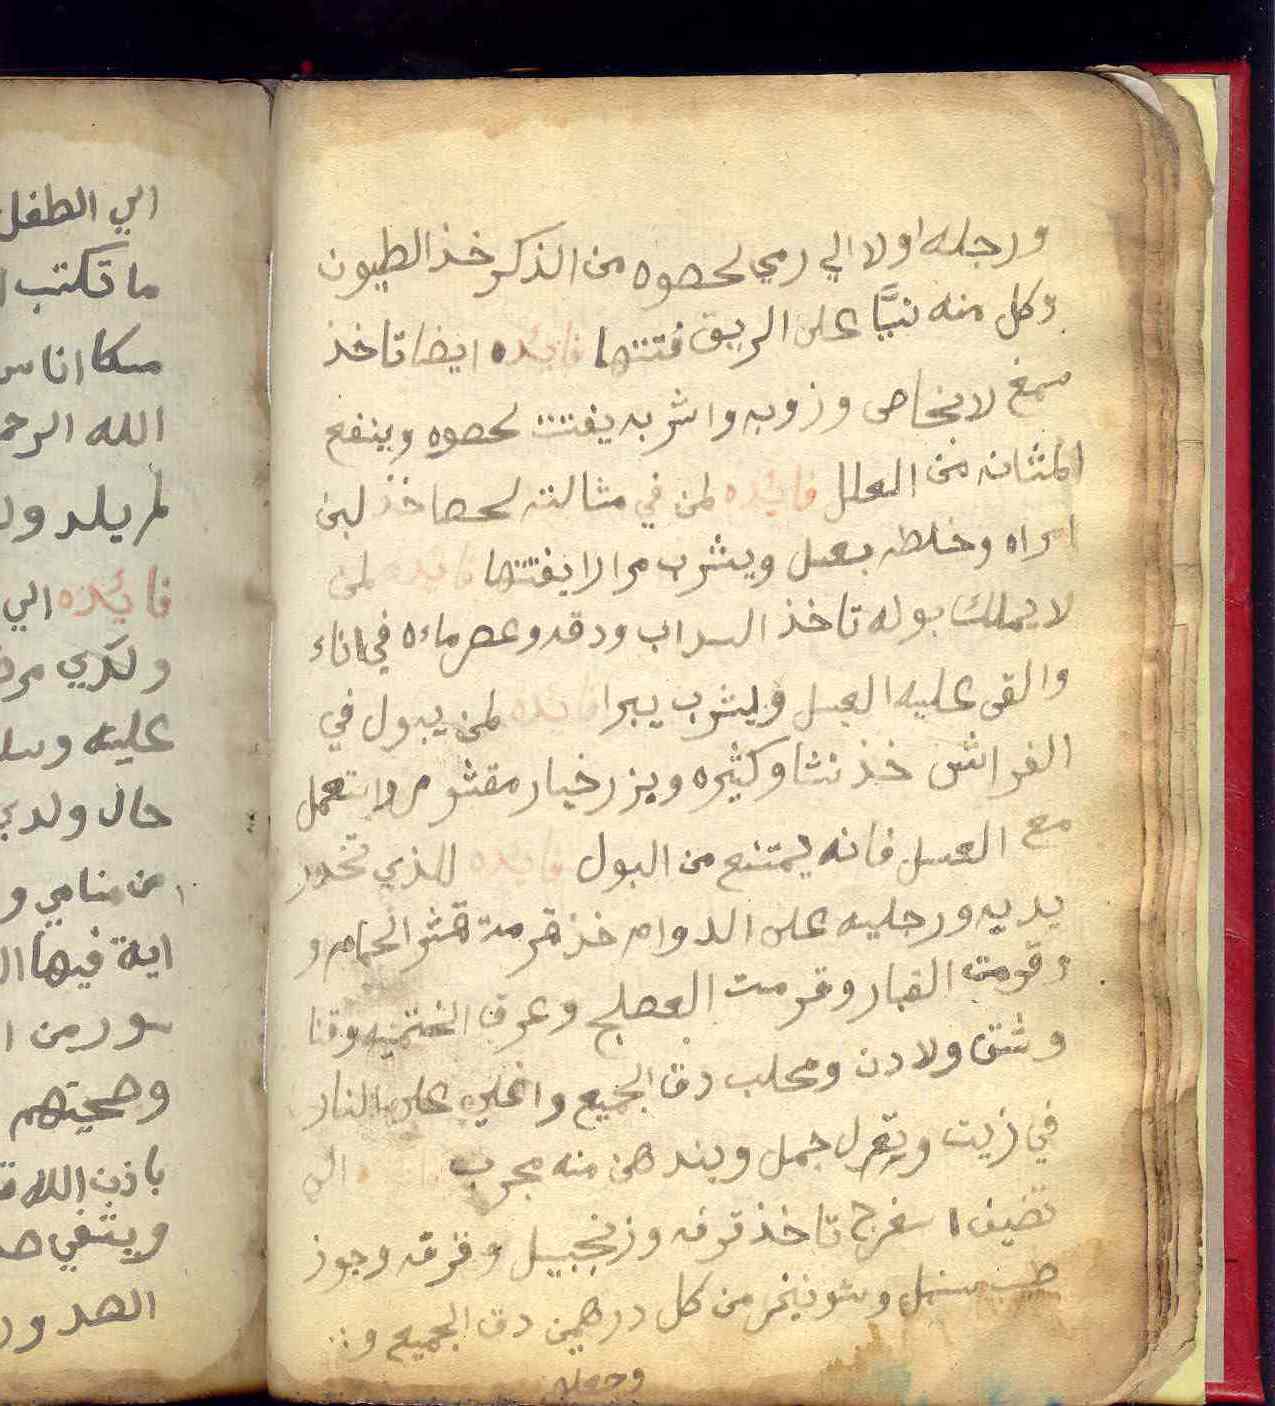 ورجله اولا الي رمي لحصوه من الذكر خذ الطيون
وكل منه نيًّا على الريق فتتها فائده ايضا تاخذ
صمغ لانجاص وزوبه واشربه يفتت لحصوه وينفع
المثانه من العلل فائده لمن في مثالته لحصا خذ لبن
امراه وخلطه بعسل ويشرب مرارا يفتتها فايده لمن
لا يملك بوله تاخذ السداب ودقه وعصر ماءه في اناء
والقى عليه العسل ويشرب يبرا فائده لمن يبول في
الفراش خذ نشا وكثيره وبزر خيار مقشور واستعمل
مع العسل فانه يمتنع من البول فايده للذي تخدر
يديه ورجليه على الدوام خذ قرمة قشر الحمام و
وقرمت القبار وقرمت العصلج وعرق الختميه وقنا
وشق ولادن ومحلب دق الجميع واغليه على النار
في زيت ويترل جمل ويندهن منه مجرب الى
تضيف ا سفرج تاخذ قرفه وزنجبيل وقرفه وجوز
طيب سنبل وشونيخر من كل درهمين دق الجميع و
وجعله
الي الطفل
ما تكتب
مسكا اناس
الله الرحم
لم يلد ول
فائده الي
ولدي مرض
عليه وسل
حال ولدي
من منامي و
اية فيها ال
سور من ا
وصحيتهم
باذن الله ت
ويشفي صد
الهد ور